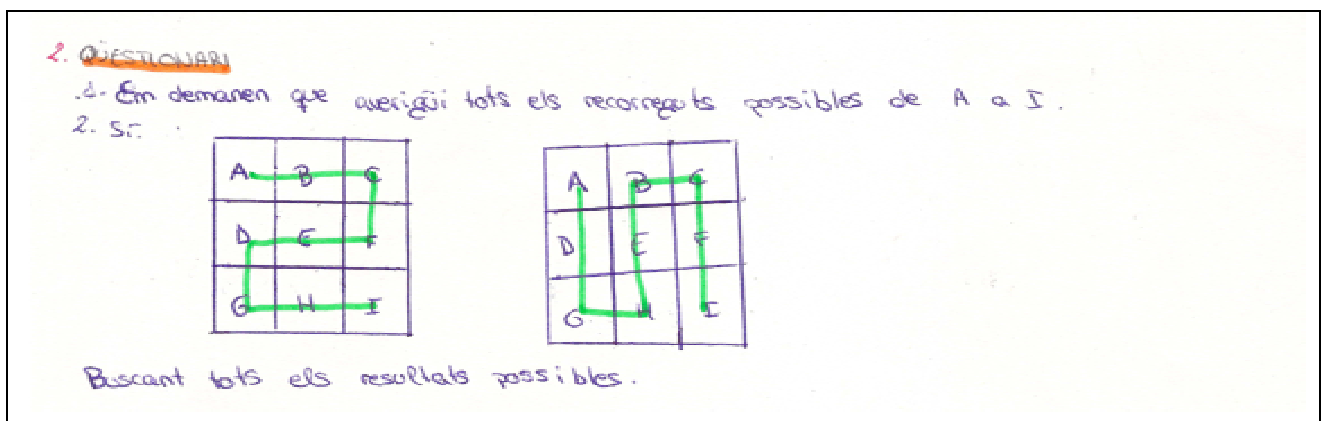 2. QÜESTIONARI
.1- Em demanen que averigüi tots els recorreguts possibles de A a I.
2. Sí.
A B C
D E F
G H I
A B C
D E F
G H I
Buscant tots els resultats possibles.